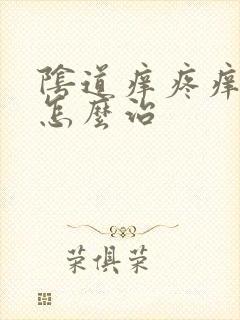 陰道痒疼痒
怎麼治
荣俱荣